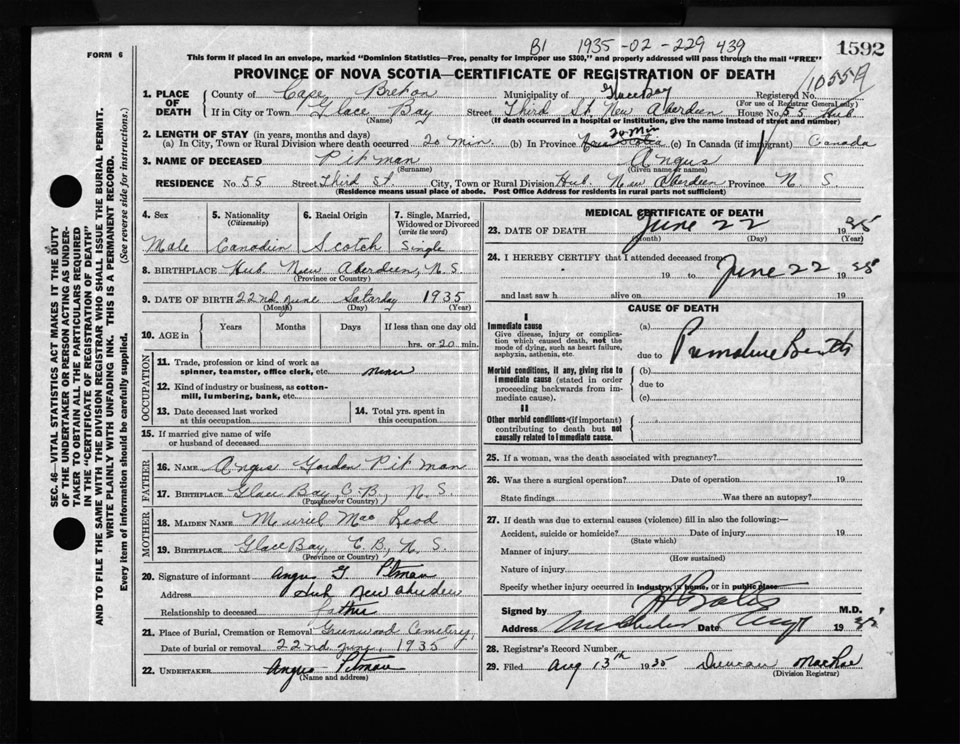 B1 1935-02-229 439
1592
FORM 6
This form if placed in an envelope, marked "Dominion Statistics—Free, penalty for improper use $300," and properly addressed will pass through the mail "FREE"
PROVINCE OF NOVA SCOTIA—CERTIFICATE OF REGISTRATION OF DEATH
1. PLACE OF DEATH
County of Cape Breton Municipality of Glace Bay Registered No. 1055A
(For use of Registrar General only)
If in City or Town Glace Bay Street Third St. New Aberdeen House No. 55 Hub.
(Name) (If death occurred in a hospital or institution, give the name instead of street and number)
2. LENGTH OF STAY (in years, months and days)
(a) In City, Town or Rural Division where death occurred 20 min. (b) In Province Nova Scotia 20 Min (c) In Canada (if immigrant) Canada
3. NAME OF DECEASED Pitman Angus
(Surname) (Given name or names)
RESIDENCE No. 55 Street Third St. City, Town or Rural Division Hub. New Aberdeen Province N. S.
(Residence means usual place of abode. Post Office Address for residents in rural parts not sufficient)
4. Sex
Male
5. Nationality
(Citizenship)
Canadien
6. Racial Origin
Scotch
7. Single, Married, Widowed or Divorced
(write the word)
Single
8. BIRTHPLACE Hub. New Aberdeen, N.S.
(Province or Country)
9. DATE OF BIRTH 22nd June Satarday 1935
(Month) (Day) (Year)
10. AGE in Years Months Days If less than one day old
hrs. or 20 min.
OCCUPATION
11. Trade, profession or kind of work as
spinner, teamster, office clerk, etc.
12. Kind of industry or business, as cotton-
mill, lumbering, bank, etc.
13. Date deceased last worked
at this occupation
14. Total yrs. spent in
this occupation
15. If married give name of wife
or husband of deceased
FATHER
16. NAME Angus Gordon Pitman
17. BIRTHPLACE Glace Bay, C.B., N. S.
(Province or Country)
MOTHER
18. MAIDEN NAME Muriel Mac Leod
19. BIRTHPLACE Glace Bay, C.B., N. S.
(Province or Country)
20. Signature of informant Angus G. Pitman
Address Hub New Aberdeen
Relationship to deceased father
21. Place of Burial, Cremation or Removal Greenwood Cemetery,
Date of burial or removal 22nd June, 1935
22. UNDERTAKER Angus Pitman
(Name and address)
MEDICAL CERTIFICATE OF DEATH
23. DATE OF DEATH June 22 1935
(Month) (Day) (Year)
24. I HEREBY CERTIFY that I attended deceased from
19 to June 22 1935
and last saw h alive on 19
CAUSE OF DEATH
I
Immediate cause
Give disease, injury or complica-
tion which caused death, not the
mode of dying, such as heart failure,
asphyxia, asthenia, etc.
(a)
due to Premature Birth
Morbid conditions, if any, giving rise to
immediate cause (stated in order
proceeding backwards from im-
mediate cause).
(b)
due to
(c)
II
Other morbid conditions (if important)
contributing to death but not
causally related to immediate cause.
25. If a woman, was the death associated with pregnancy?
26. Was there a surgical operation? Date of operation 19
State findings Was there an autopsy?
27. If death was due to external causes (violence) fill in also the following:—
Accident, suicide or homicide? Date of injury 19
(State which)
Manner of injury
(How sustained)
Nature of injury
Specify whether injury occurred in industry, in home, or in public place
Signed by M.D.
Address Date Aug 19
28. Registrar's Record Number
29. Filed Aug 13th 1935 Duncan MacRae
(Division Registrar)
SEC. 46—VITAL STATISTICS ACT MAKES IT THE DUTY
OF THE UNDERTAKER OR PERSON ACTING AS UNDER-
TAKER TO OBTAIN ALL THE PARTICULARS REQUIRED
IN THE "CERTIFICATE OF REGISTRATION OF DEATH"
AND TO FILE THE SAME WITH THE DIVISION REGISTRAR WHO SHALL ISSUE THE BURIAL PERMIT.
WRITE PLAINLY WITH UNFADING INK. THIS IS A PERMANENT RECORD.
Every item of information should be carefully supplied. (See reverse side for instructions.)